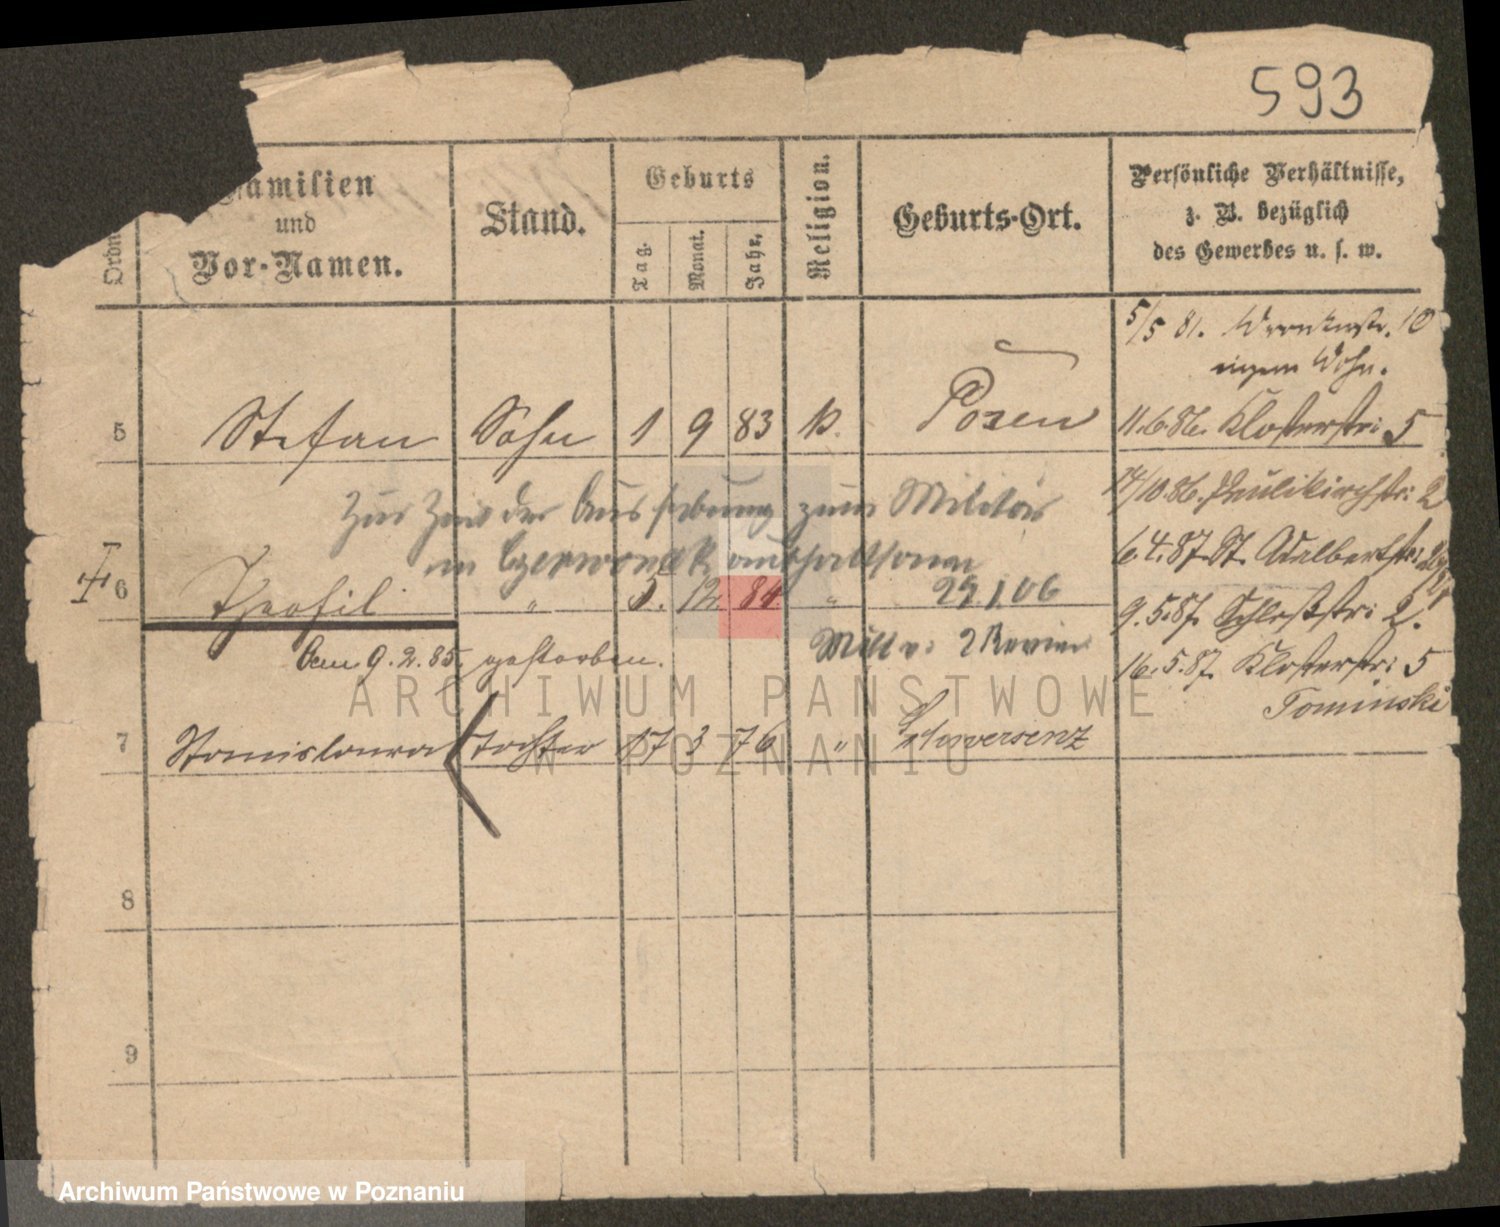 593
Ordn
Familien
und
Vor-Namen.
Stand.
Geburts
Tag.
Monat.
Jahr.
Religion.
Geburts-Ort.
Persönliche Verhältnisse,
z. B. bezüglich
des Gewerbes u. s. w.
5/5 81. Wronkerstr. 10
eigene Wohn.
5 Stefan Sohn 1 9 83 k. Posen
11.6.86. Klosterstr: 5
Zur Zeit der Aushebung zum Militär
14/10 86. Paulikirchstr: 2
in Czerwonak aufhaltsam
6.4.87. St. Adalbertstr:
6 Theofil " 5. 12 84. " 29.1.06
9.5.87. Schloßstr: 2.
den 9.2.85. gestorben.
Mill v: 2 Revier
16.5.87. Klosterstr: 5
Tominski
7 Stanislawa Tochter 17 3 76 " Schwersenz
8
9
ARCHIWUM PAŃSTWOWE
W POZNANIU
Archiwum Państwowe w Poznaniu